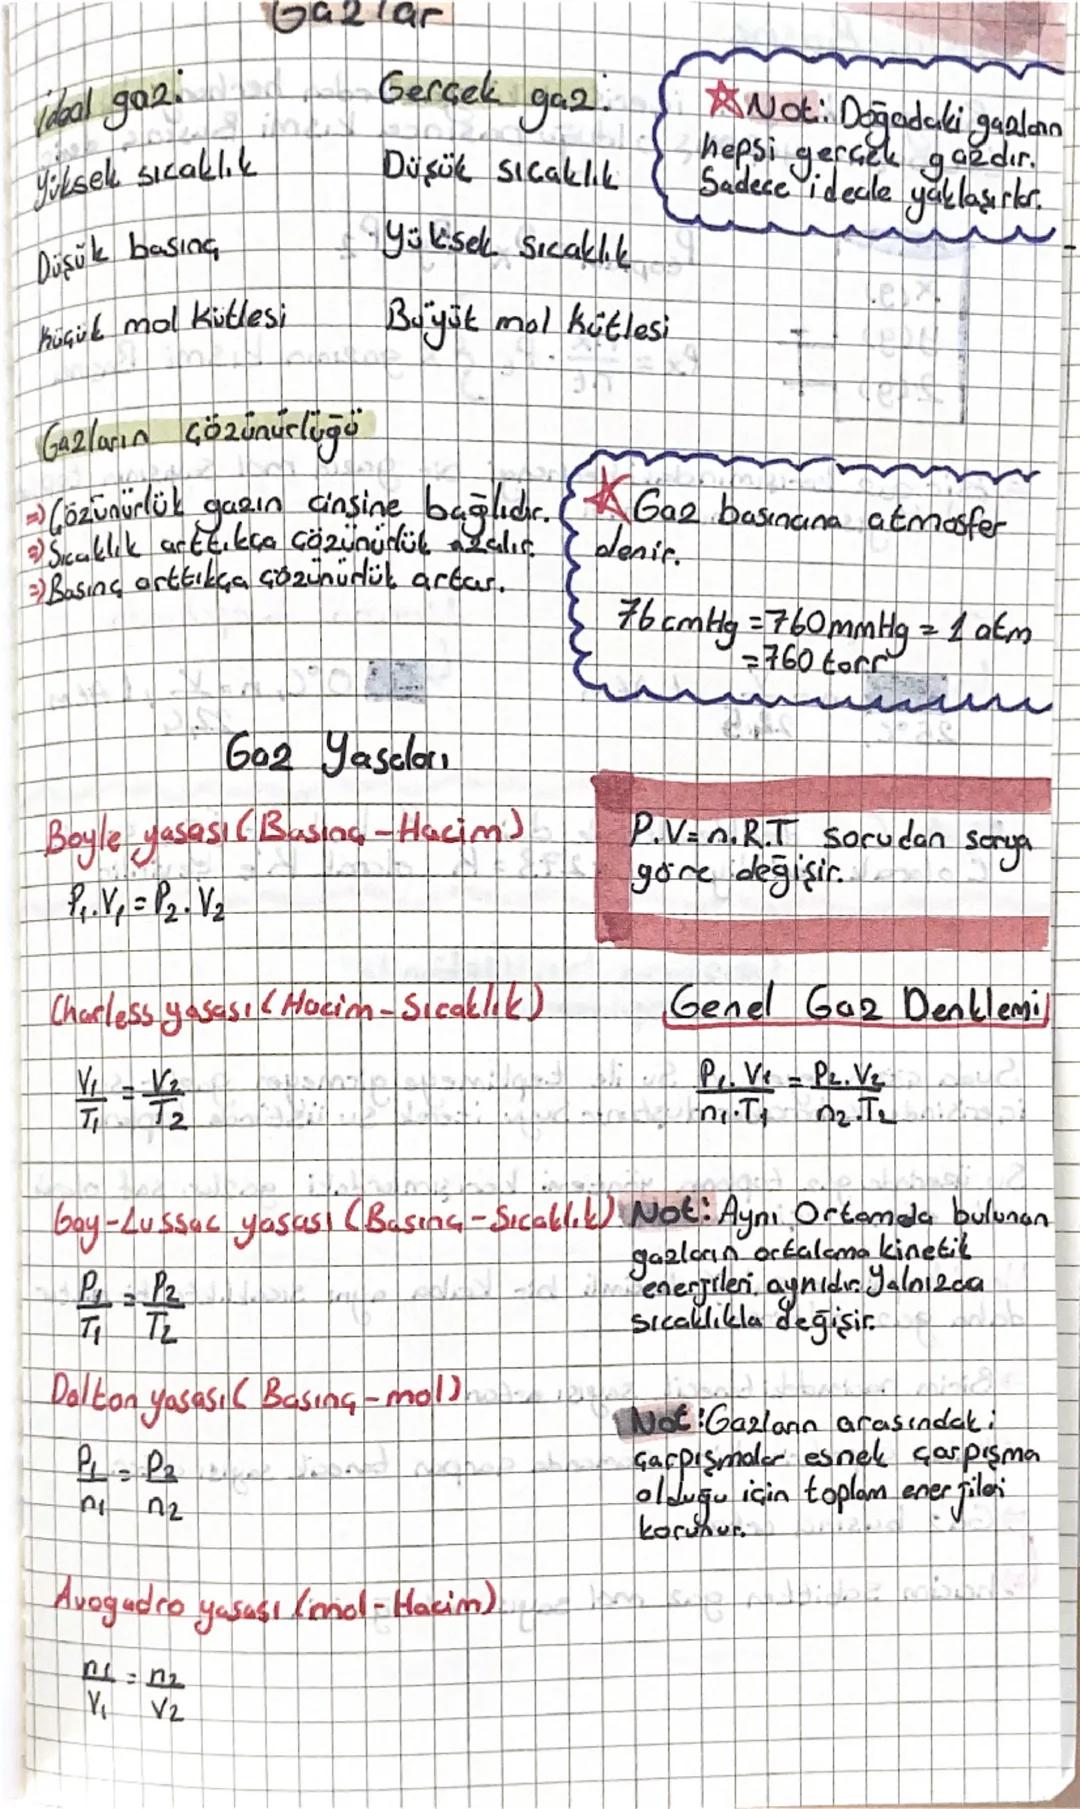 Gazlar
ideal gaz:
Yüksek sıcaklık
Düşük basınç
Küçük mol kütlesi
Gerçek gaz:
Düşük sıcaklık
Yüksek sıcaklık
Büyük mol kütlesi
Not: Doğadaki gazların
hepsi gerçek gazdır.
Sadece ideale yaklaşırlar.
Gazların çözünürlüğü
=> Çözünürlük gazın cinsine bağlıdır.
=> Sıcaklık arttıkça çözünürlük azalır.
=> Basınç arttıkça çözünürlük artar.
Gaz basıncına atmosfer
denir.
76 cmHg = 760 mmHg = 1 atm
= 760 torr
Gaz Yasaları
Boyle yasası (Basınç - Hacim)
P₁.V₁ = P₂.V₂
P.V = n.R.T sorudan soruya
göre değişir.
Charless yasası (Hacim - Sıcaklık)
V₁/T₁ = V₂/T₂
Genel Gaz Denklemi
P₁.V₁/n₁.T₁ = P₂.V₂/n₂.T₂
Gay-Lussac yasası (Basınç - Sıcaklık)
P₁/T₁ = P₂/T₂
Not: Aynı Ortamda bulunan
gazların ortalama kinetik
enerjileri aynıdır. Yalnızca
sıcaklıkla değişir.
Dalton yasası (Basınç - mol)
P₁/n₁ = P₂/n₂
Not: Gazların arasındaki
çarpışmalar esnek çarpışma
olduğu için toplam enerjileri
korunur.
Avogadro yasası (mol - Hacim)
n₁/V₁ = n₂/V₂